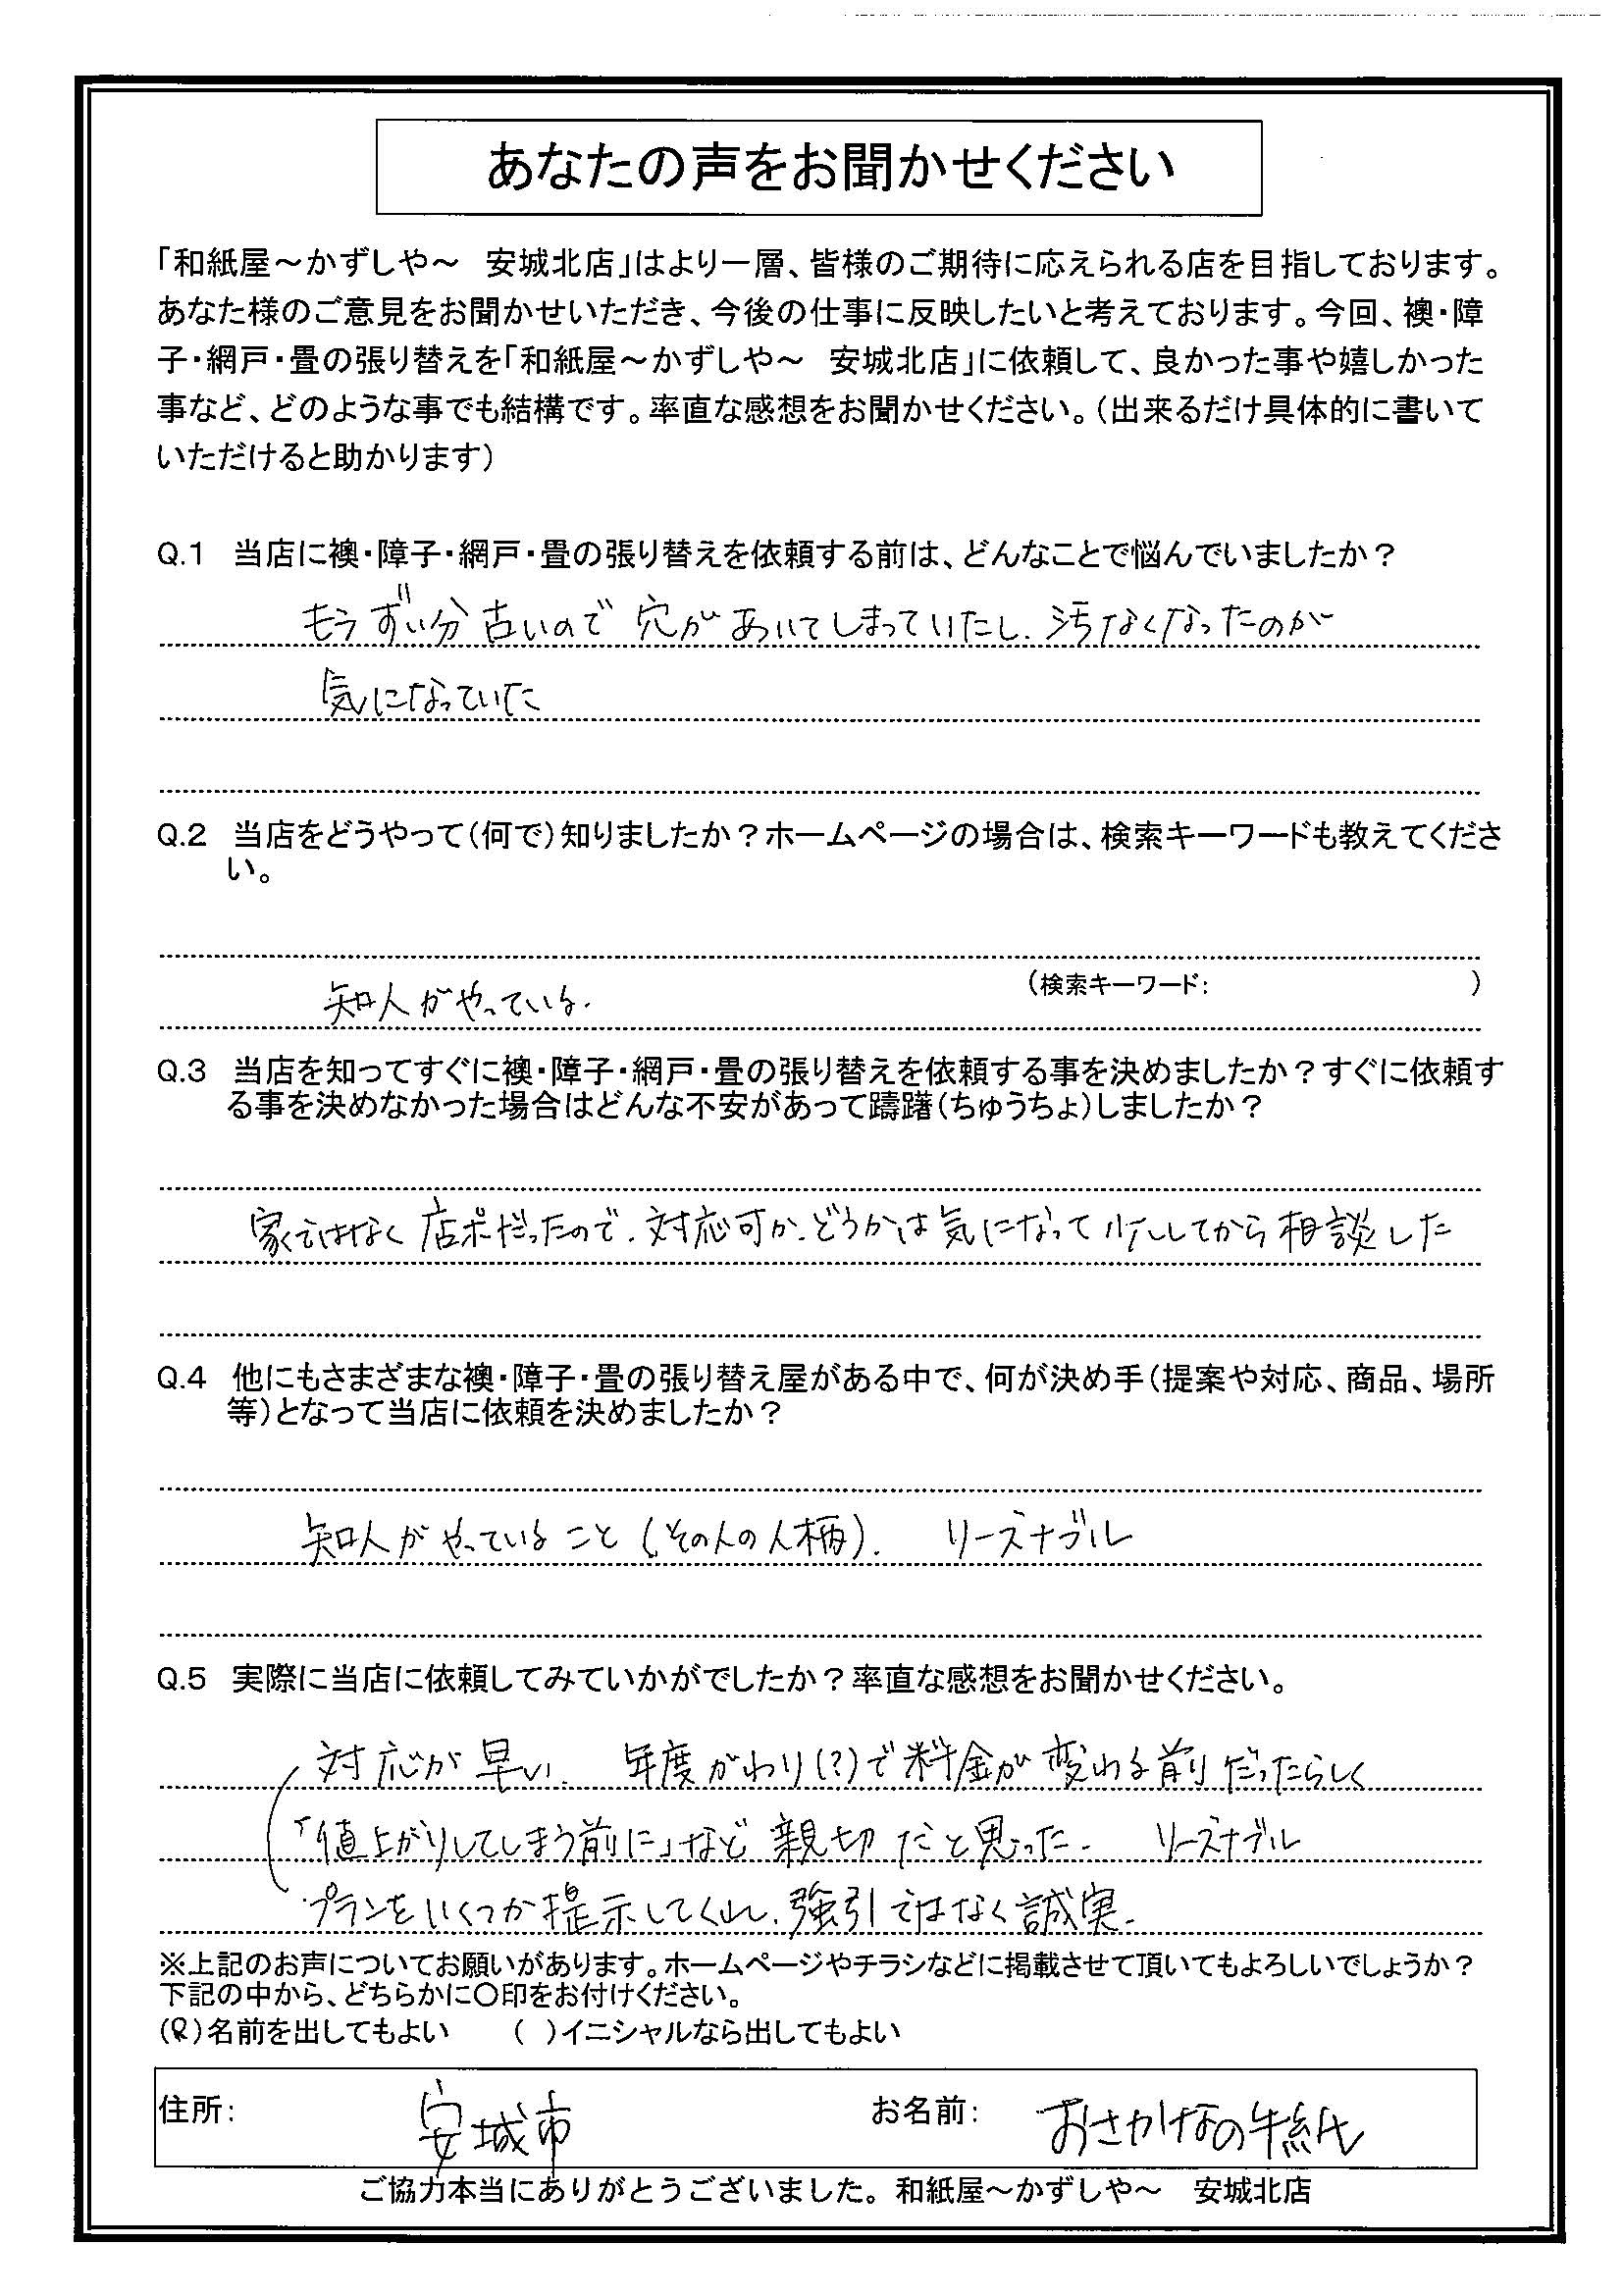 あなたの声をお聞かせください
「和紙屋～かずしや～　安城北店」はより一層、皆様のご期待に応えられる店を目指しております。
あなた様のご意見をお聞かせいただき、今後の仕事に反映したいと考えております。今回、襖・障
子・網戸・畳の張り替えを「和紙屋～かずしや～　安城北店」に依頼して、良かった事や嬉しかった
事など、どのような事でも結構です。率直な感想をお聞かせください。（出来るだけ具体的に書いて
いただけると助かります）
Q.1　当店に襖・障子・網戸・畳の張り替えを依頼する前は、どんなことで悩んでいましたか？
もうずい分古いので穴があいてしまっていたし、汚なくなったのが
気になっていた
Q.2　当店をどうやって（何で）知りましたか？ホームページの場合は、検索キーワードも教えてくださ
い。
（検索キーワード：　　　　　）
知人がやっている.
Q.3　当店を知ってすぐに襖・障子・網戸・畳の張り替えを依頼する事を決めましたか？すぐに依頼す
る事を決めなかった場合はどんな不安があって躊躇（ちゅうちょ）しましたか？
家ではなく店ポだったので、対応可か、どうかは気になって少ししてから相談した
Q.4　他にもさまざまな襖・障子・畳の張り替え屋がある中で、何が決め手（提案や対応、商品、場所
等）となって当店に依頼を決めましたか？
知人がやっていること（その人の人柄）.　リーズナブル
Q.5　実際に当店に依頼してみていかがでしたか？率直な感想をお聞かせください。
対応が早い.　年度がわり(?)で料金が変わる前だったらしく
「値上がりしてしまう前に」など親切だと思った.　リーズナブル
プランをいくつか提示してくれ、強引ではなく誠実.
※上記のお声についてお願いがあります。ホームページやチラシなどに掲載させて頂いてもよろしいでしょうか？
下記の中から、どちらかに〇印をお付けください。
（　）名前を出してもよい　　（　）イニシャルなら出してもよい
住所：　安城市　お名前：　おさかなの手紙
ご協力本当にありがとうございました。和紙屋～かずしや～　安城北店